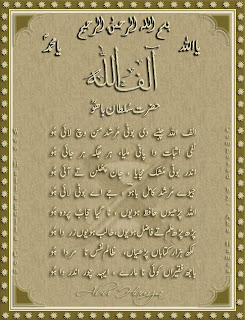 بسم اللہ الرحمن الرحیم
یا اللہ یا محمد
الف اللہ
حضرت سلطان باھو
الف اللہ چنبے دی بوٹی مرشد من وچ لائی ہو
نفی اثبات دا پانی ملیا، ہر جگہ ہر جائی ہو
اندر بوٹی مشک مچایا، جان پھلن تے آئی ہو
جیوے مرشد کامل باہو، جے اے بوٹی لائی ہو
اللہ پڑھیوں حافظ ہویوں، نا گیا حجاب پردہ ہو
پڑھ پڑھ علم تے فاضل ہویوں، طالب ہویوں زر دا ہو
لکھ ہزار کتاباں پڑھیاں، ظالم نفس نا مردا ہو
باجھ فقیراں کوئی نا مارے، ایہہ چور اندر دا ہو